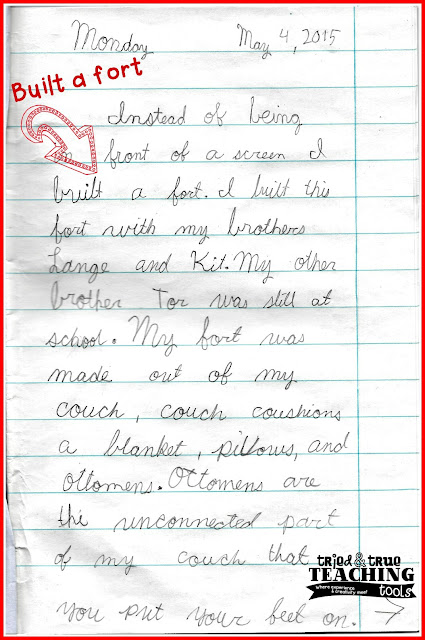 Monday May 4, 2015
Built a fort
Instead of being
in front of a screen I
built a fort. I built this
fort with my brothers
Lange and Kit. My other
brother Tor was still at
school. My fort was
made out of my
couch, couch coushions
a blanket, pillows, and
ottomens. Ottomens are
the unconnected part
of my couch that
you put your feet on.
tried & true
TEACHING
where experience & creativity meet
tools